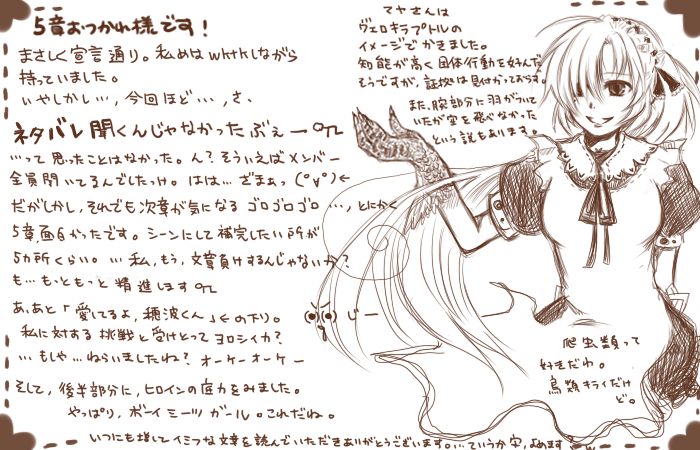 5章おつかれ様です!
まさしく宣言通り。私めはwktkしながら
持っていました。
いやしかし…,今回ほど…,さ、
ネタバレ聞くんじゃなかったぶぇーorz
…って思ったことはなかった。ん?そういえばメンバー
全員聞いてるんでしたっけ。はは…ざまぁっ(°∀°)←
だがしかし,それでも次章が気になるゴロゴロゴロ…,とにかく
5章,面白かったです。シーンにして補完したい所が
5カ所くらい。…私,もう,文章負けするんじゃないか?
も…もっともっと精進しますorz
あ,あと「愛してるよ,穂波くん」←の下り。
私に対する挑戦と受けとってヨロシイカ?
…もしや…ねらいましたね?オーケーオーケー
そして,後半部分に,ヒロインの底力をみました。
やっぱり,ボーイミーツガール。これだね。
いつにも増してイミフな文章を読んでいただきありがとうございます。…ていうか字,よめます
マヤさんは
ヴェロキラプトルの
イメージでかきました。
知能が高く団体行動を好んだ
そうですが,証拠は見付かっておらず。
また,腕部分に羽がついて
いたが空を飛べなかった
という説もあります。
じー
爬虫類って
好きだわ。
鳥類キライだけ
ど。